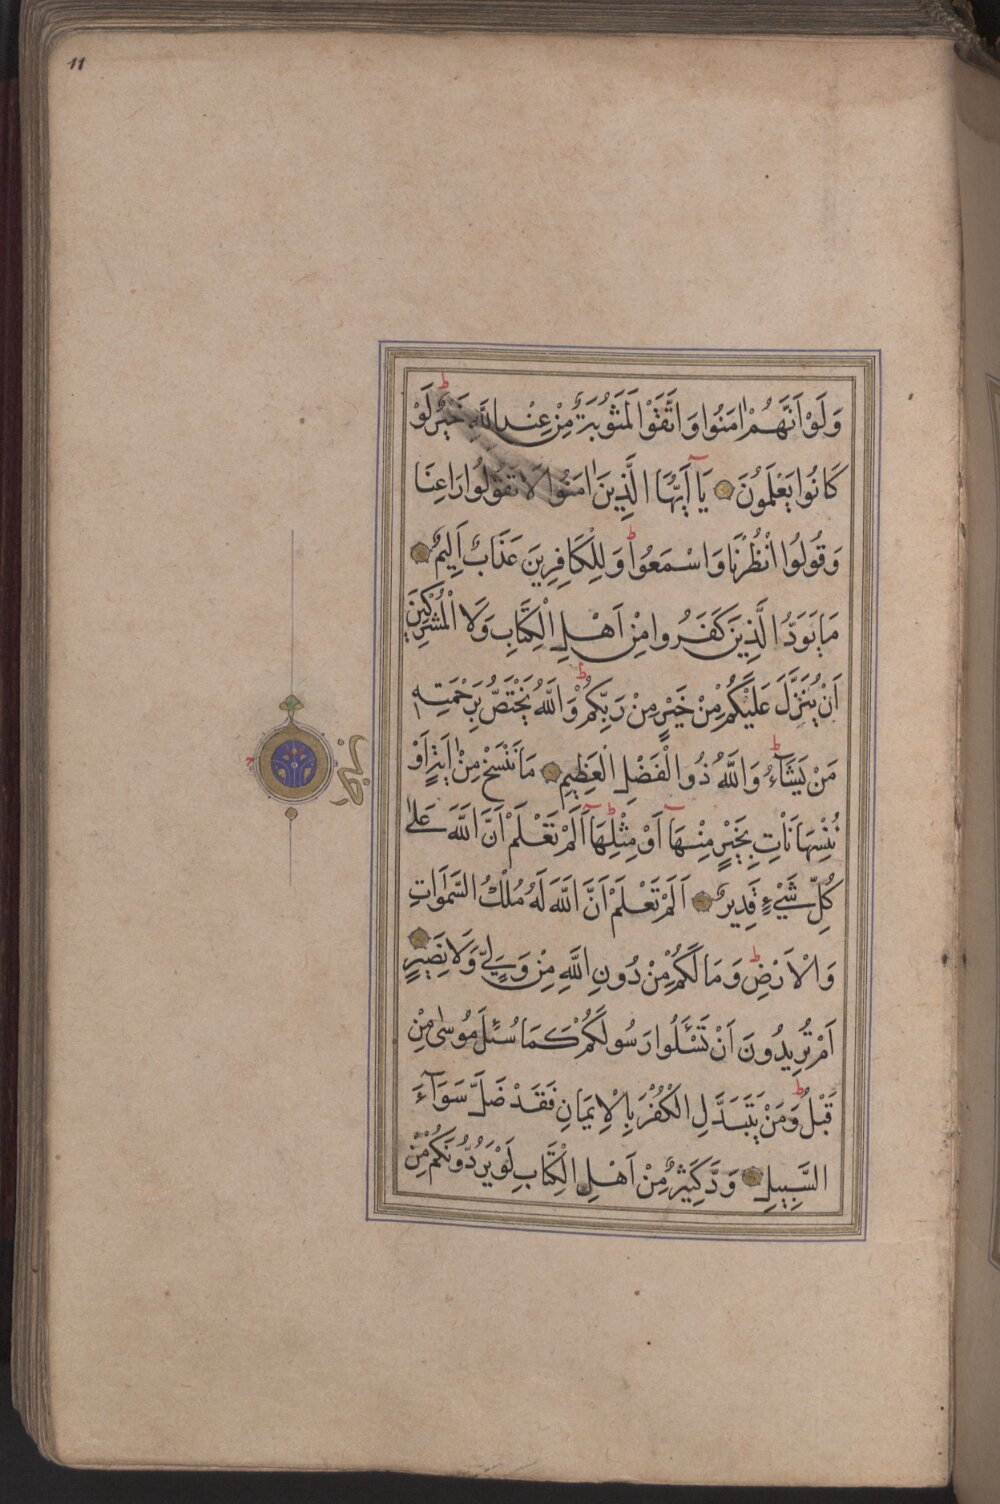 11
وَلَوْ اَنَّهُمْ اٰمَنُوا وَاتَّقَوْا لَمَثُوبَةٌ مِنْ عِنْدِ اللّٰهِ خَيْرٌ ط لَوْ
كَانُوا يَعْلَمُونَ يَآ اَيُّهَا الَّذِينَ اٰمَنُوا لَا تَقُولُوا رَاعِنَا
وَقُولُوا انْظُرْنَا وَاسْمَعُوا ط وَلِلْكَافِرِينَ عَذَابٌ اَلِيمٌ
مَا يَوَدُّ الَّذِينَ كَفَرُوا مِنْ اَهْلِ الْكِتَابِ وَلَا الْمُشْرِكِينَ
اَنْ يُنَزَّلَ عَلَيْكُمْ مِنْ خَيْرٍ مِنْ رَبِّكُمْ ط وَاللّٰهُ يَخْتَصُّ بِرَحْمَتِهِ
مَنْ يَشَآءُ ط وَاللّٰهُ ذُو الْفَضْلِ الْعَظِيمِ مَا نَنْسَخْ مِنْ اٰيَةٍ اَوْ
حزب
نُنْسِهَا نَاْتِ بِخَيْرٍ مِنْهَآ اَوْ مِثْلِهَا ط اَلَمْ تَعْلَمْ اَنَّ اللّٰهَ عَلٰى
كُلِّ شَيْءٍ قَدِيرٌ اَلَمْ تَعْلَمْ اَنَّ اللّٰهَ لَهُ مُلْكُ السَّمٰوَاتِ
وَالْاَرْضِ ط وَمَا لَكُمْ مِنْ دُونِ اللّٰهِ مِنْ وَلِيٍّ وَلَا نَصِيرٍ
اَمْ تُرِيدُونَ اَنْ تَسْـَٔلُوا رَسُولَكُمْ كَمَا سُئِلَ مُوسٰى مِنْ
قَبْلُ ط وَمَنْ يَتَبَدَّلِ الْكُفْرَ بِالْاِيمَانِ فَقَدْ ضَلَّ سَوَآءَ
السَّبِيلِ وَدَّ كَثِيرٌ مِنْ اَهْلِ الْكِتَابِ لَوْ يَرُدُّونَكُمْ مِنْ